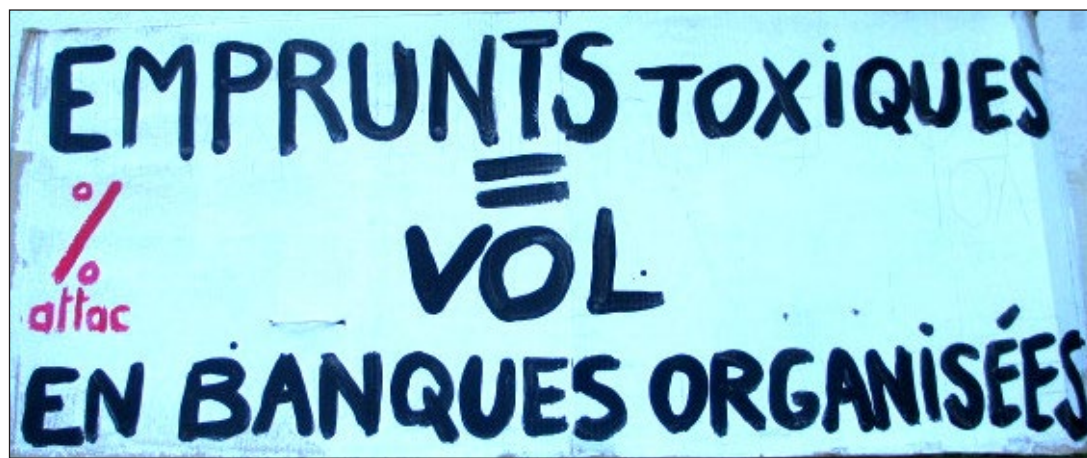 EMPRUNTS TOXiQUES
=
VOL
%
attac
EN BANQUES ORGANiSÉES